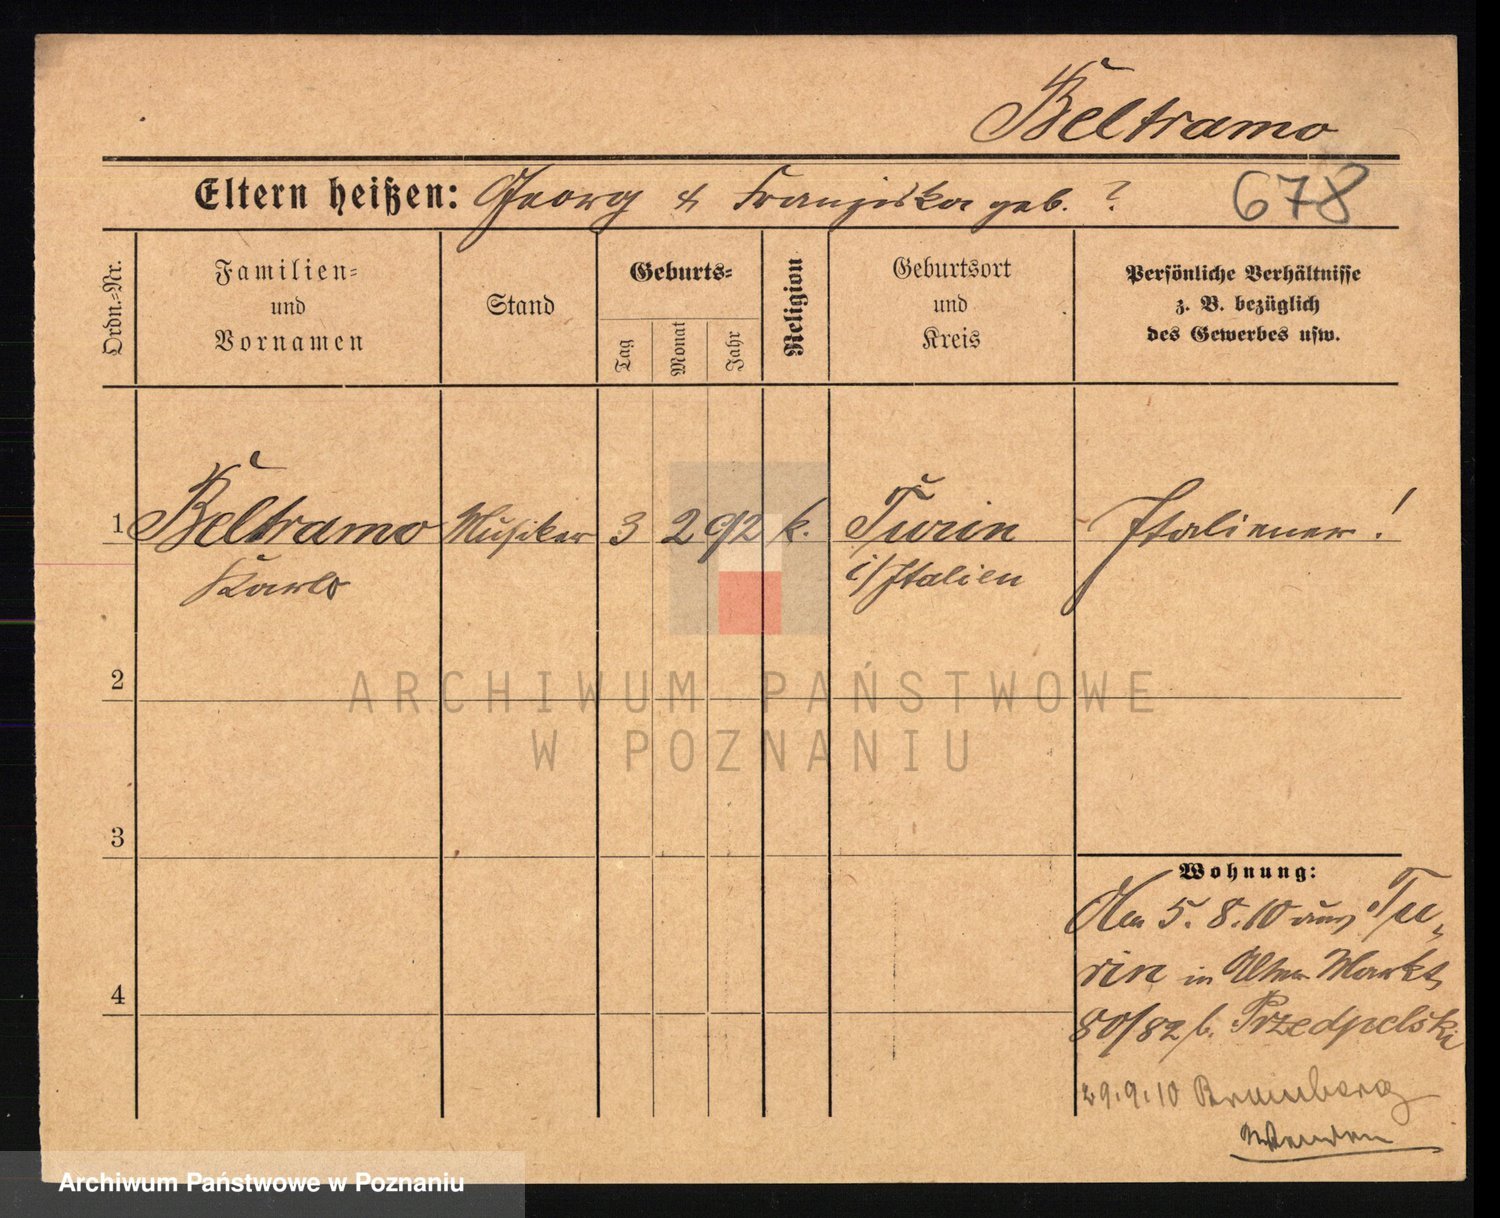 Beltramo
Eltern heißen: Georg & Franziska geb. ?
678
Ordn.=Nr.
Familien=
und
Vornamen
Stand
Geburts=
Tag
Monat
Jahr
Religion
Geburtsort
und
Kreis
Persönliche Verhältnisse
z. B. bezüglich
des Gewerbes usw.
1 Beltramo Musiker 3 2 92 k. Turin Italiener!
Karlo i/Italien
2
ARCHIWUM PAŃSTWOWE
W POZNANIU
3
Wohnung:
Am 5.8.10 aus Tu-
rin in Alter Markt
80/82 b. Przedpelski
4
29.9.10 Bromberg
Wenden
Archiwum Państwowe w Poznaniu